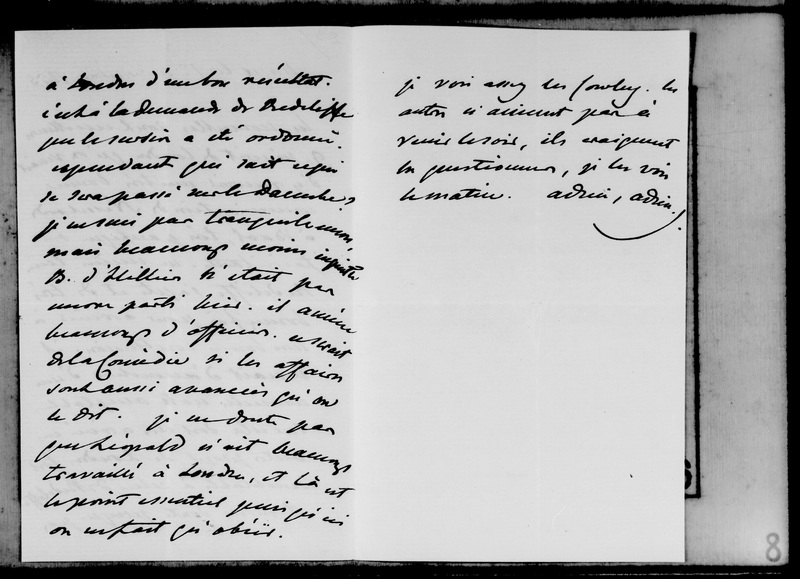 à Londres d'un bon résultat.
c'est à la demande de Redcliffe
que le sursis a été ordonné.
cependant qui sait ce qui
se sera passé sur le Danube,
je ne suis pas tranquile moi,
mais beaucoup moins inquiète
B. d'Hilliers n'était pas
encore parti hier. il amène
beaucoup d'officiers. ce serait
de la Comédie si les affaires
sont aussi avancées qu'on
le dit. je ne doute pas
que Léopold n'ait beaucoup
travaillé à Londres, et là est
le point essentiel puisqu'ici
on ne fait qu'obéir.
je vois assez les Cowley. les
autres n'aiment pas à
venir le soir, ils craignent
les questionneurs, je les vois
le matin. adieu, adieu.!
8